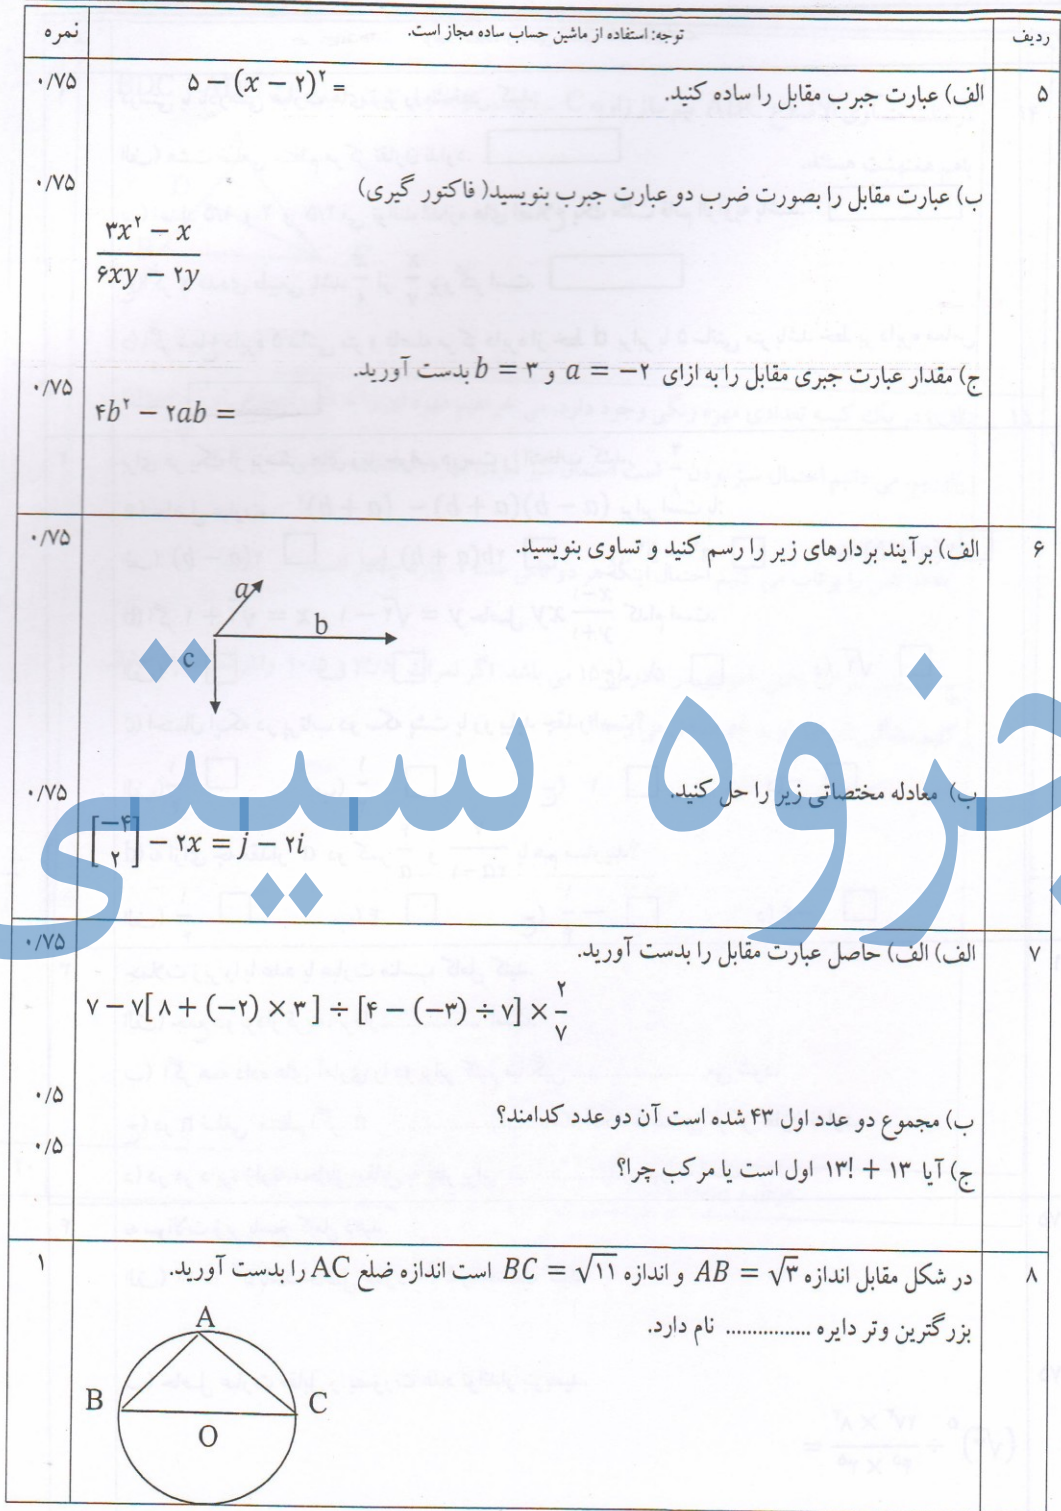 ردیف توجه: استفاده از ماشین حساب ساده مجاز است. نمره
۵ الف) عبارت جبرب مقابل را ساده کنید. ۵ − (x − ۲)² = ۰/۷۵
ب) عبارت مقابل را بصورت ضرب دو عبارت جبرب بنویسید( فاکتور گیری) ۰/۷۵
(۳x² − x) / (۶xy − ۲y)
ج) مقدار عبارت جبری مقابل را به ازای a = −۲ و b = ۳ بدست آورید. ۰/۷۵
۴b² − ۲ab =
۶ الف) برآیند بردارهای زیر را رسم کنید و تساوی بنویسید. ۰/۷۵
a
b
c
جزوه سیتی
ب) معادله مختصاتی زیر را حل کنید. ۰/۷۵
[−۴ ۲] − ۲x = j − ۲i
۷ الف) الف) حاصل عبارت مقابل را بدست آورید. ۰/۷۵
۷ − ۷[۸ + (−۲) × ۳] ÷ [۴ − (−۳) ÷ ۷] × ۲/۷
ب) مجموع دو عدد اول ۴۳ شده است آن دو عدد کدامند؟ ۰/۵
ج) آیا ۱۳ + !۱۳ اول است یا مرکب چرا؟ ۰/۵
۸ در شکل مقابل اندازه AB = √۳ و اندازه BC = √۱۱ است اندازه ضلع AC را بدست آورید. ۱
بزرگترین وتر دایره ................ نام دارد.
A
B C
O